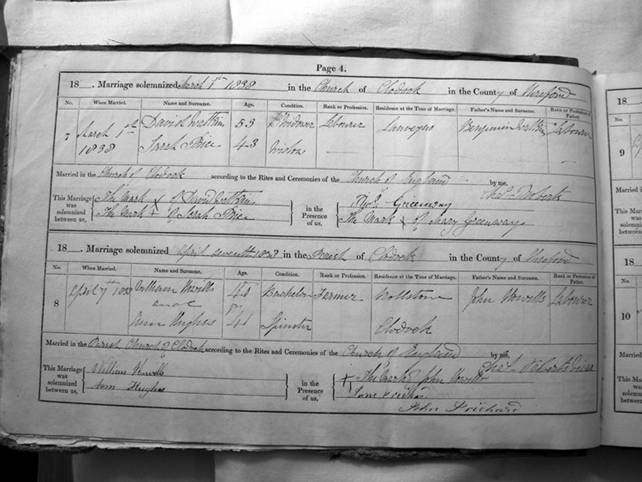 Page 4.
18 . Marriage solemnized March 1st 1838 in the Church of Clodock in the County of Hereford
No. When Married. Name and Surname. Age. Condition. Rank or Profession. Residence at the Time of Marriage. Father's Name and Surname. Rank or Profession of Father.
7 March 1st David Watkins 53 Widower Labourer Benjamin Watkins Labourer
1838 Sarah Price 43 Widow
Married in the Church of Clodock according to the Rites and Ceremonies of the Church of England by me,
This Marriage was solemnized between us, The Mark X of David Watkins in the Presence of us, Greenway
The Mark X of Sarah Price The Mark X of Mary Greenway
18 . Marriage solemnized April seventh 1838 in the Parish of Clodock in the County of Hereford
No. When Married. Name and Surname. Age. Condition. Rank or Profession. Residence at the Time of Marriage. Father's Name and Surname. Rank or Profession of Father.
8 April 7th 1838 William Howells 44 Bachelor Farmer John Howells Labourer
and
Ann Hughes 41 Spinster Clodock
Married in the Parish Church of Clodock according to the Rites and Ceremonies of the Church of England by me,
This Marriage was solemnized between us, William Howells in the Presence of us, X The Mark of John Howells
Ann Hughes
John Prichard
18
No.
9
18
No.
10